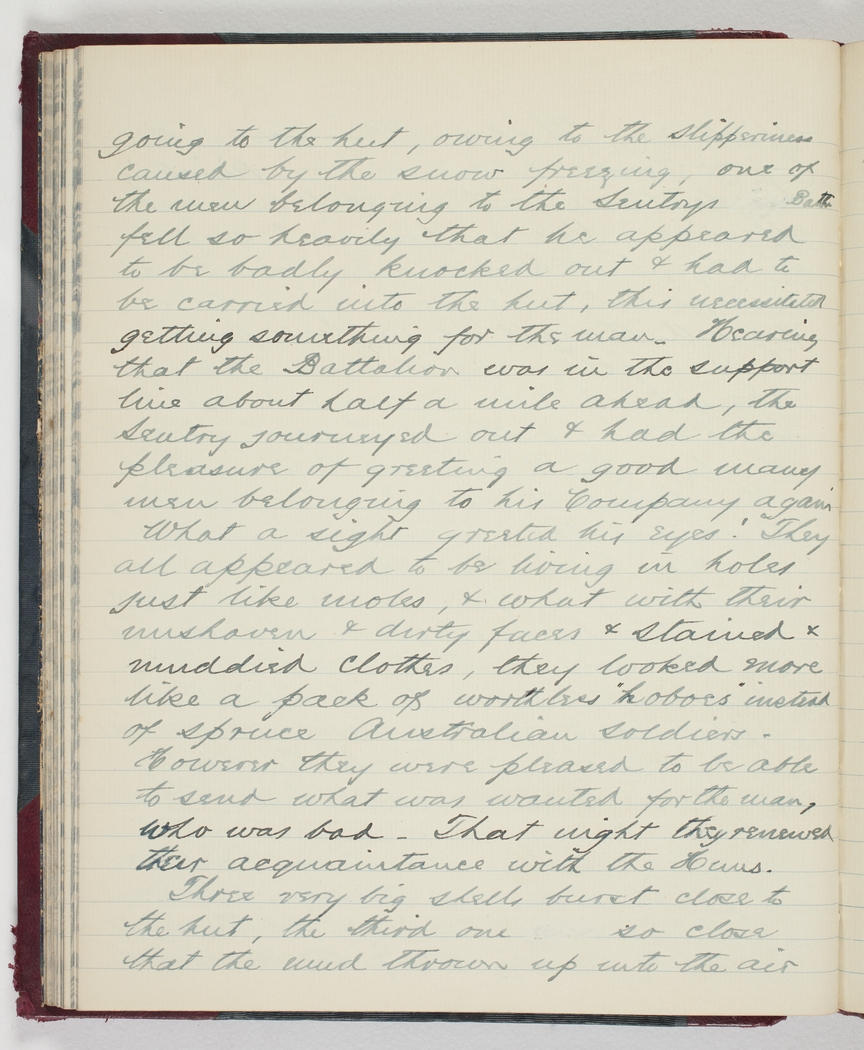 going to the hut, owing to the slipperiness
caused by the snow freezing, one of
the men belonging to the Sentrys Battn
fell so heavily that he appeared
to be badly knocked out & had to
be carried into the hut, this necessitated
getting something for the man. Hearing
that the Battalion was in the support
line about half a mile ahead, the
Sentry journeyed out & had the
pleasure of greeting a good many
men belonging to his Company again
What a sight greeted his eyes! They
all appeared to be living in holes
just like moles, & what with their
unshaven & dirty faces & stained &
muddied clothes, they looked more
like a pack of worthless "hoboes" instead
of spruce Australian soldiers.
However they were pleased to be able
to send what was wanted for the man,
who was bad. That night they renewed
their acquaintance with the Huns.
Three very big shells burst close to
the hut, the third one so close
that the mud thrown up into the air